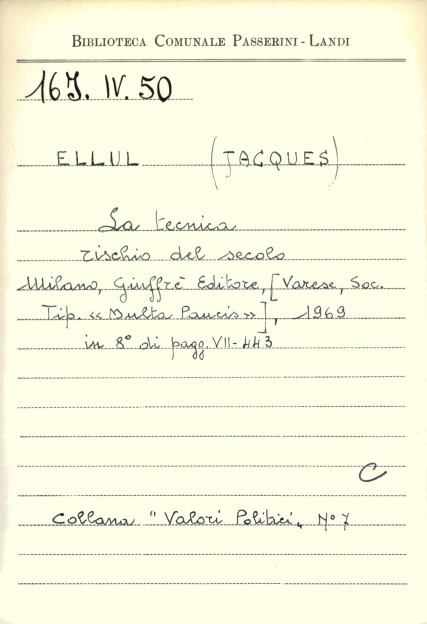 BIBLIOTECA COMUNALE PASSERINI - LANDI
16J. IV. 50
ELLUL (JACQUES)
La tecnica
rischio del secolo
Milano, Giuffrè Editore, [Varese, Soc.
Tip. « Multa Paucis »], 1969
in 8° di pagg. VII-443
C
Collana "Valori Politici„ N° 7